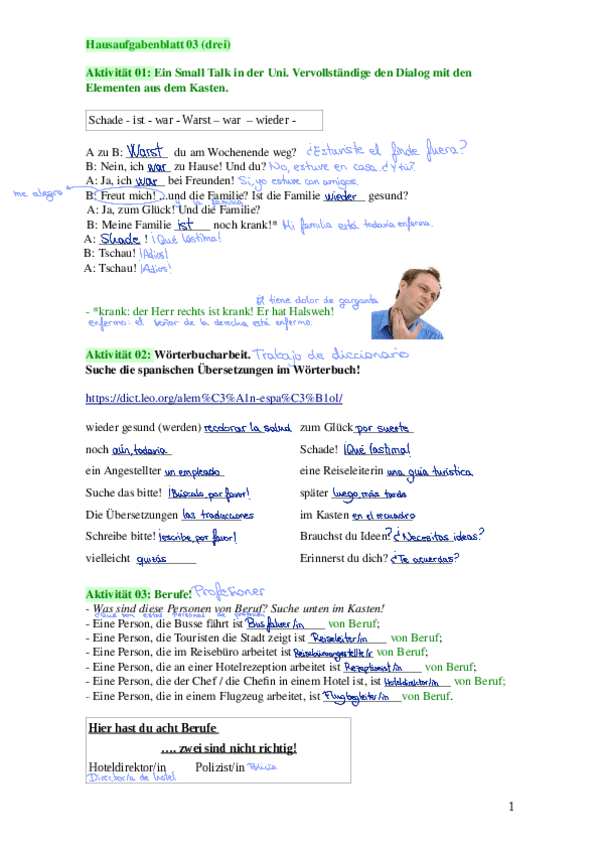 Hausaufgabenblatt 03 (drei)
Aktivität 01: Ein Small Talk in der Uni. Vervollständige den Dialog mit den
Elementen aus dem Kasten.
Schade - ist - war - Warst – war – wieder -
A zu B: Warst du am Wochenende weg? ¿Estuviste el finde fuera?
B: Nein, ich war zu Hause! Und du? No, estuve en casa ¿Y tú?
A: Ja, ich war bei Freunden! Si, yo estuve con amigos.
me alegro B: Freut mich! ...und die Familie? Ist die Familie wieder gesund?
y la familia
A: Ja, zum Glück! Und die Familie?
B: Meine Familie ist noch krank!* Mi familia está todavía enferma.
A: Shade ! ¡Qué lástima!
B: Tschau! ¡Adios!
A: Tschau! ¡Adios!
El tiene dolor de garganta
- *krank: der Herr rechts ist krank! Er hat Halsweh!
enfermo: el señor de la derecha está enfermo.
Aktivität 02: Wörterbucharbeit. Trabajo de diccionario
Suche die spanischen Übersetzungen im Wörterbuch!
https://dict.leo.org/alem%C3%A1n-espa%C3%B1ol/
wieder gesund (werden) recobrar la salud zum Glück por suerte
noch aún, todavía Schade! ¡Qué lastima!
ein Angestellter un empleado eine Reiseleiterin una guía turística
Suche das bitte! ¡Búscalo, por favor! später luego, más tarde
Die Übersetzungen las traducciones im Kasten en el recuadro
Schreibe bitte! ¡escribe, por favor! Brauchst du Ideen? ¿Necesitas ideas?
vielleicht quizás Erinnerst du dich? ¿Te acuerdas?
Aktivität 03: Berufe! Profesiones
- Was sind diese Personen von Beruf? Suche unten im Kasten!
- Eine Person, die Busse fährt ist Busfahrer/in von Beruf;
- Eine Person, die Touristen die Stadt zeigt ist Reiseleiter/in von Beruf;
- Eine Person, die im Reisebüro arbeitet ist Reisebüroangestellte/r von Beruf;
- Eine Person, die an einer Hotelrezeption arbeitet ist Rezeptionist/in von Beruf;
- Eine Person, die der Chef / die Chefin in einem Hotel ist, ist Hoteldirektor/in von Beruf;
- Eine Person, die in einem Flugzeug arbeitet, ist Flugbegleiter/in von Beruf.
Hier hast du acht Berufe
…. zwei sind nicht richtig!
Hoteldirektor/in Polizist/in Policía
Director/a de hotel
1